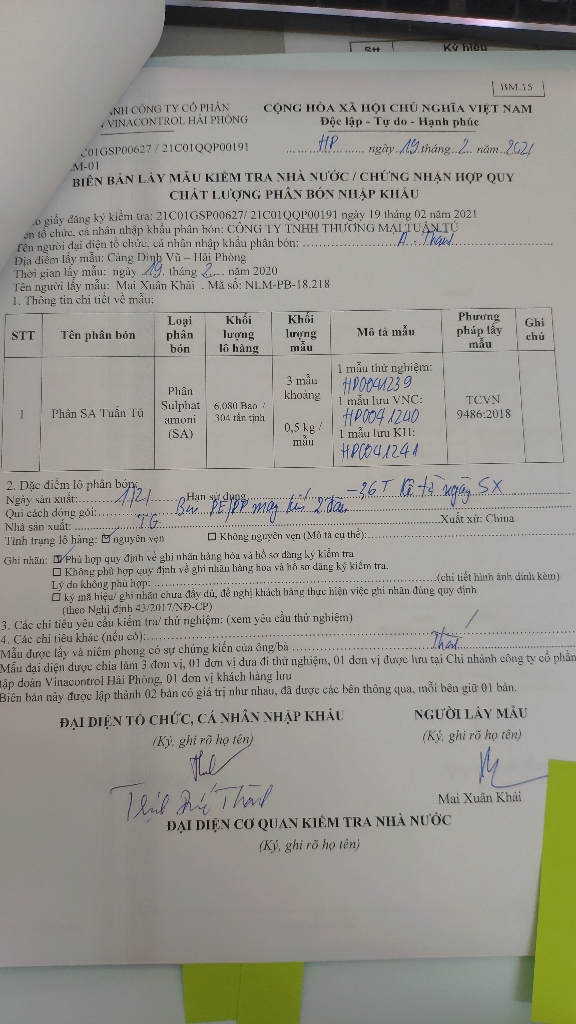 Stt Ký hiệu
BM.15
ÁNH CÔNG TY CỔ PHẦN
VINACONTROL HẢI PHÒNG
CỘNG HÒA XÃ HỘI CHỦ NGHĨA VIỆT NAM
Độc lập - Tự do - Hạnh phúc
C01GSP00627 / 21C01QQP00191
M-01
HP, ngày 19 tháng 2 năm 2021
BIÊN BẢN LẤY MẪU KIỂM TRA NHÀ NƯỚC / CHỨNG NHẬN HỢP QUY
CHẤT LƯỢNG PHÂN BÓN NHẬP KHẨU
o giấy đăng ký kiểm tra: 21C01GSP00627/ 21C01QQP00191 ngày 19 tháng 02 năm 2021
ên tổ chức, cá nhân nhập khẩu phân bón: CÔNG TY TNHH THƯƠNG MẠI TUẤN TÚ
Tên người đại diện tổ chức, cá nhân nhập khẩu phân bón: A. Thành
Địa điểm lấy mẫu: Cảng Đình Vũ – Hải Phòng
Thời gian lấy mẫu: ngày 19 tháng 2 năm 2020
Tên người lấy mẫu: Mai Xuân Khải . Mã số: NLM-PB-18.218
1. Thông tin chi tiết về mẫu:
STT Tên phân bón Loại phân bón Khối lượng lô hàng Khối lượng mẫu Mô tả mẫu Phương pháp lấy mẫu Ghi chú
1 Phân SA Tuấn Tú
Phân Sulphat amoni (SA)
6.080 Bao / 304 tấn tịnh
3 mẫu khoảng 0,5 kg / mẫu
1 mẫu thử nghiệm:
HP0041239
1 mẫu lưu VNC:
HP0041240
1 mẫu lưu KH:
HP0041241
TCVN 9486:2018
2. Đặc điểm lô phân bón:
Ngày sản xuất: 1/21 Hạn sử dụng 36T kể từ ngày SX
Qui cách đóng gói: Bao PE/PP may kín 2 đầu
Nhà sản xuất: TG Xuất xứ: China
Tình trạng lô hàng: ☑ nguyên vẹn ☐ Không nguyên vẹn (Mô tả cụ thể):
Ghi nhãn: ☑ Phù hợp quy định về ghi nhãn hàng hóa và hồ sơ đăng ký kiểm tra
☐ Không phù hợp quy định về ghi nhãn hàng hóa và hồ sơ đăng ký kiểm tra.
Lý do không phù hợp: (chi tiết hình ảnh đính kèm)
☐ ký mã hiệu/ ghi nhãn chưa đầy đủ, đề nghị khách hàng thực hiện việc ghi nhãn đúng quy định
(theo Nghị định 43/2017/NĐ-CP)
3. Các chỉ tiêu yêu cầu kiểm tra/ thử nghiệm: (xem yêu cầu thử nghiệm)
4. Các chỉ tiêu khác (nếu có): /
Mẫu được lấy và niêm phong có sự chứng kiến của ông/bà Thành
Mẫu đại diện được chia làm 3 đơn vị, 01 đơn vị đưa đi thử nghiệm, 01 đơn vị được lưu tại Chi nhánh công ty cổ phần
tập đoàn Vinacontrol Hải Phòng, 01 đơn vị khách hàng lưu
Biên bản này được lập thành 02 bản có giá trị như nhau, đã được các bên thông qua, mỗi bên giữ 01 bản.
ĐẠI DIỆN TỔ CHỨC, CÁ NHÂN NHẬP KHẨU
(Ký, ghi rõ họ tên)
NGƯỜI LẤY MẪU
(Ký, ghi rõ họ tên)
Mai Xuân Khải
ĐẠI DIỆN CƠ QUAN KIỂM TRA NHÀ NƯỚC
(Ký, ghi rõ họ tên)